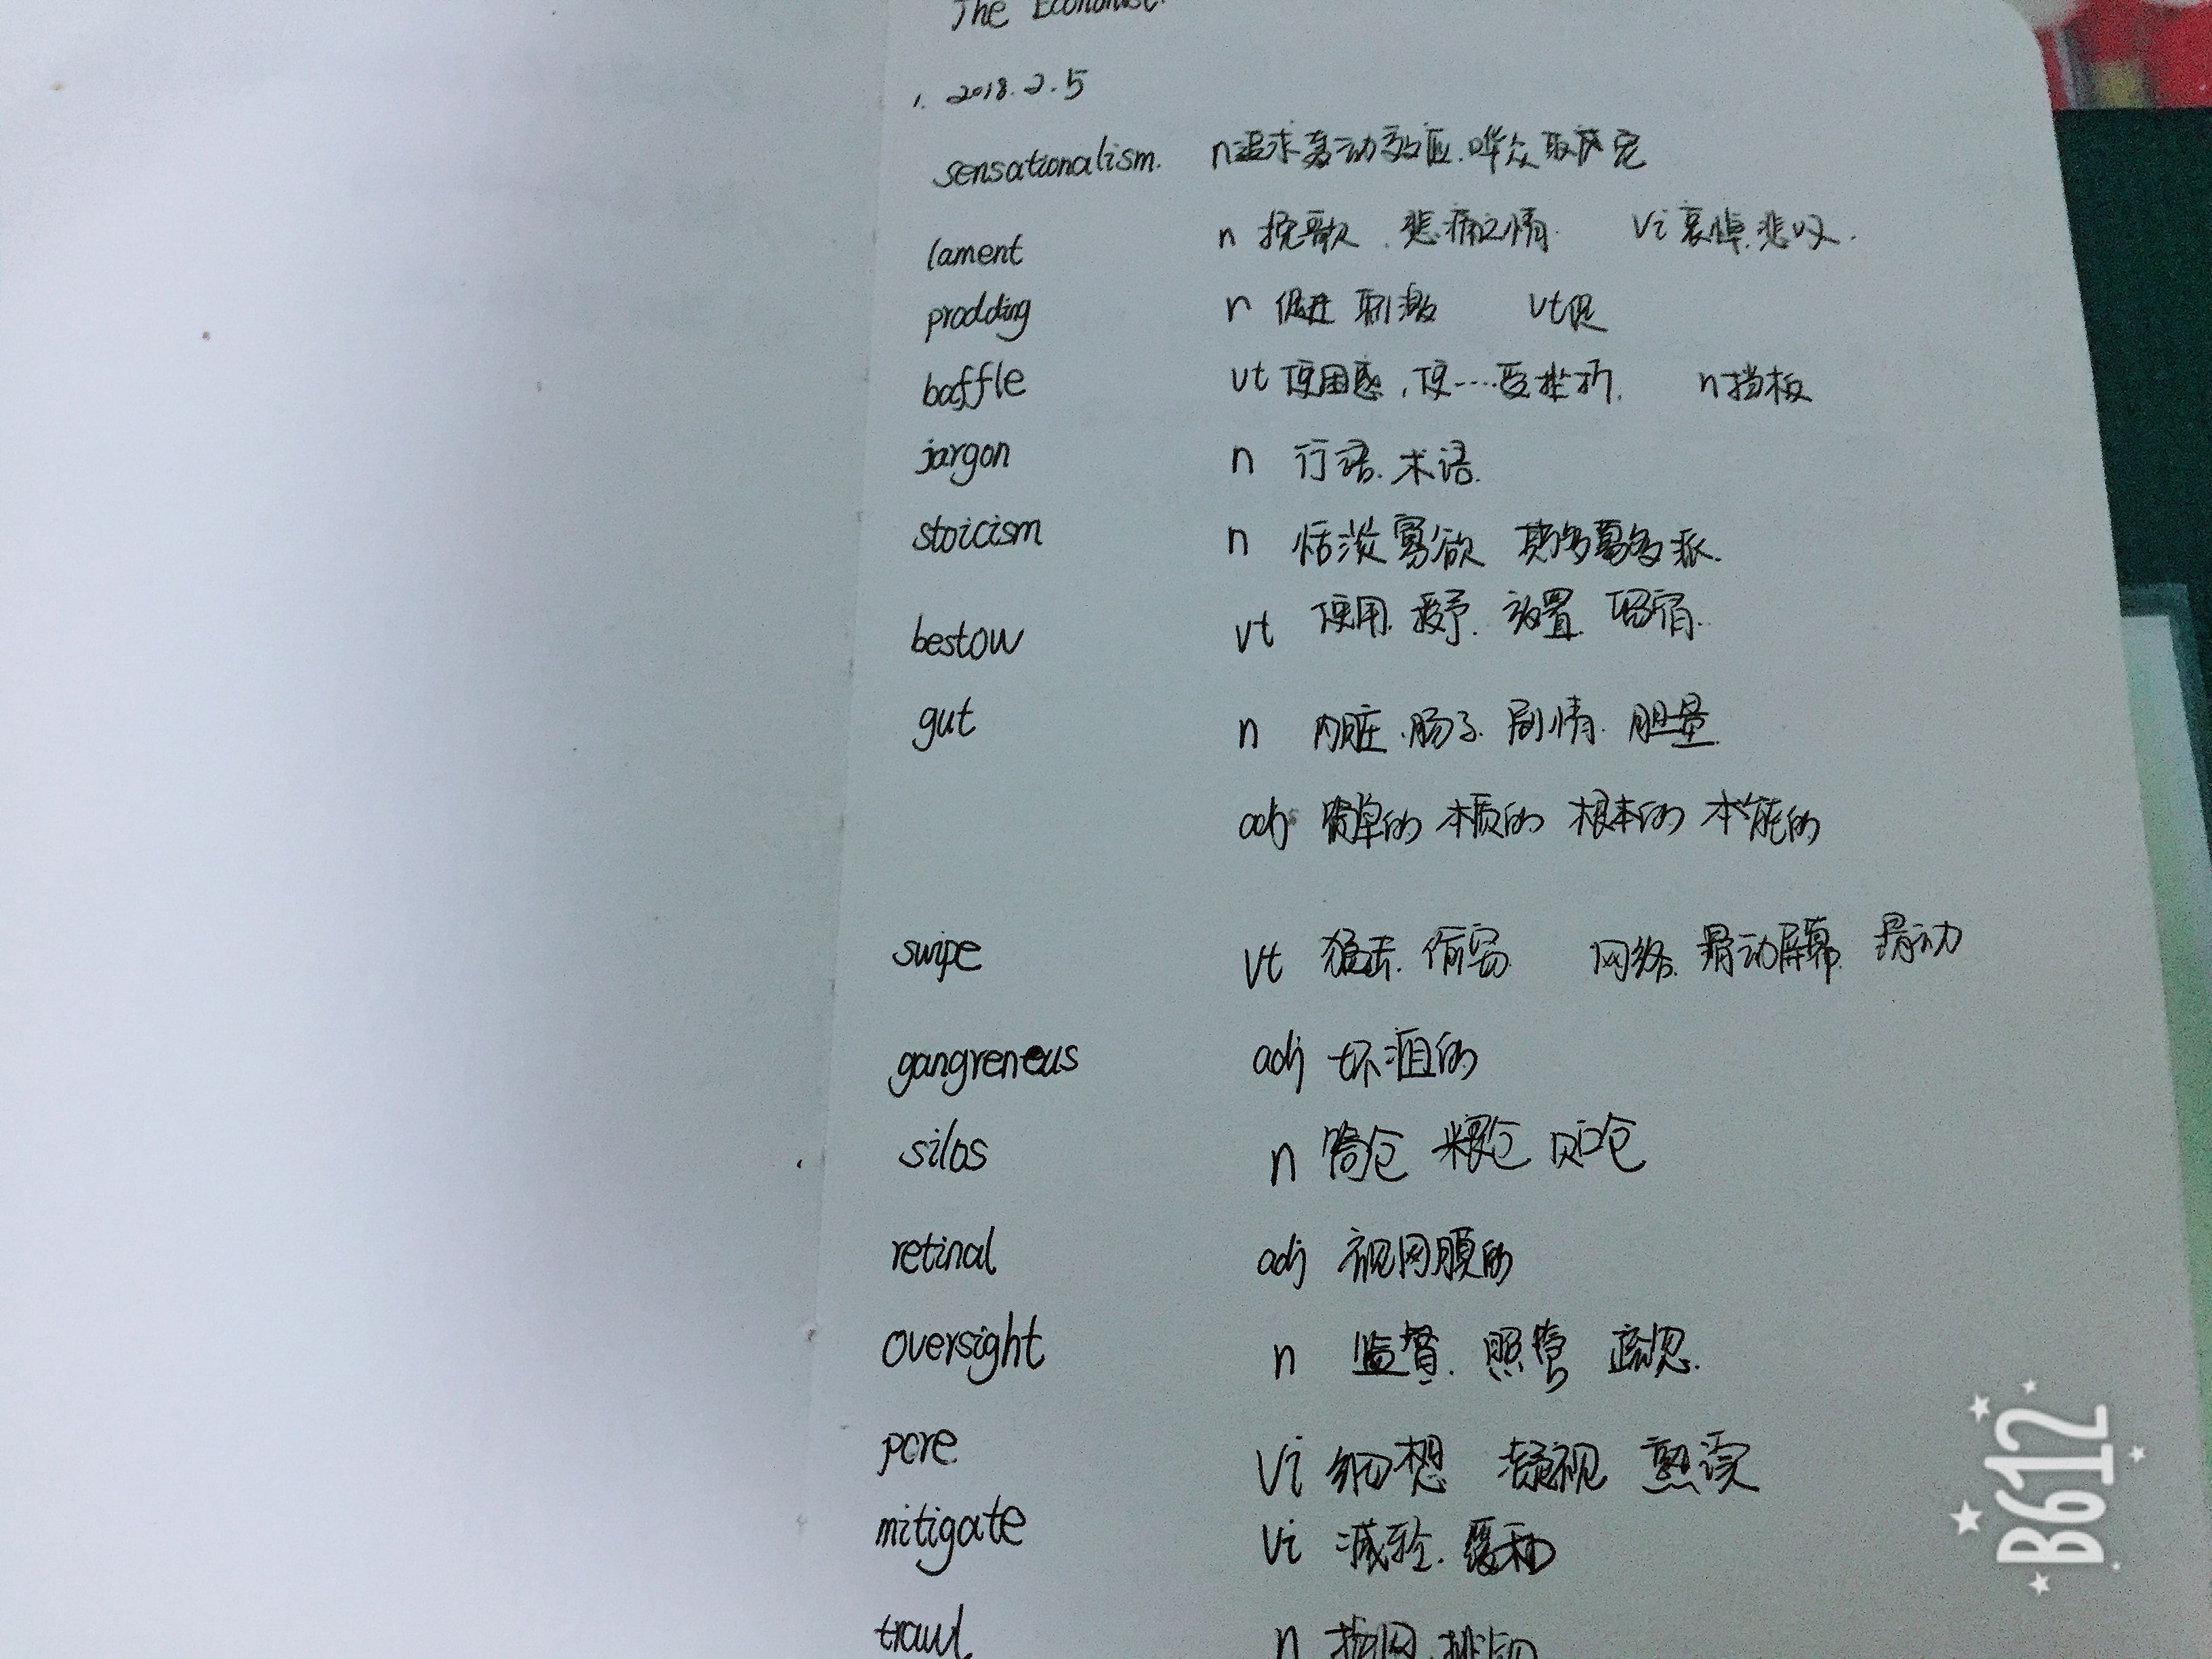 The Economist.
1. 2018.2.5
sensationalism. n追求轰动效应.哗众取宠
lament n 挽歌.悲痛之情 vi 哀悼.悲叹.
prodding n 促进 刺激 vt促
baffle vt 使困惑,使....受挫折. n挡板
jargon n 行话.术语.
stoicism n 恬淡寡欲 斯多葛多派.
bestow vt 使用.授予.放置.留宿.
gut n 内脏.肠子.剧情.胆量.
adj 简单的 本质的 根本的 本能的
swipe vt 猛击.偷窃. 网络.滑动屏幕.滑动
gangreneus adj 坏疽的
silos n 筒仓 粮仓 贮仓
retinal adj 视网膜的
oversight n 监督.照管 疏忽.
pore vi 细想 凝视 熟读
mitigate vi 减轻.缓和
trawl n 拖网
B612